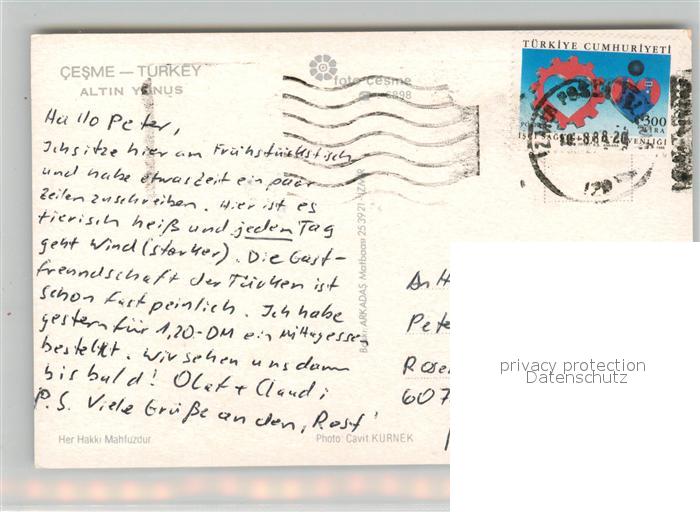 TÜRKİYE CUMHURİYETİ
300
LİRA
ÇEŞME — TURKEY
ALTIN YUNUS
foto çeşme
Hallo Peter,
Ich sitze hier am Frühstückstisch
und habe etwas Zeit ein paar
Zeilen zu schreiben. Hier ist es
tierisch heiß und jeden Tag
geht Wind (starker). Die Gast-
freundschaft der Türken ist
schon fast peinlich. Ich habe
gestern für 1,20-DM ein Mittagesse
bestellt. Wir sehen uns dann
bis bald! Olaf + Claudi
P.S. Viele Grüße an den ‚Rest'
Her Hakkı Mahfuzdur
Photo: Cavit KÜRNEK
Baskı: ARKADAŞ Matbaası 25 39 21-İZMİR
An H
Pete
Rose
607
privacy protection
Datenschutz